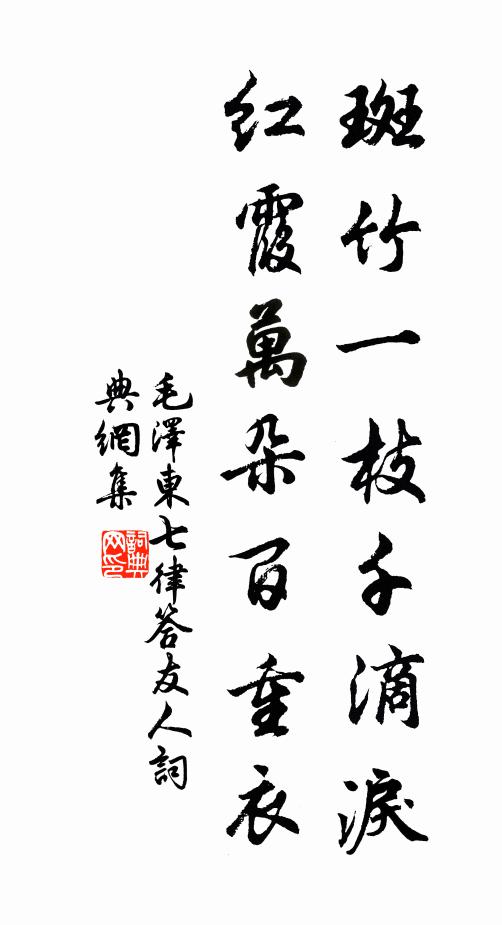 斑竹一枝千滴淚
紅霞萬朵百重衣
毛澤東七律答友人詞
典網集
詞典
网印